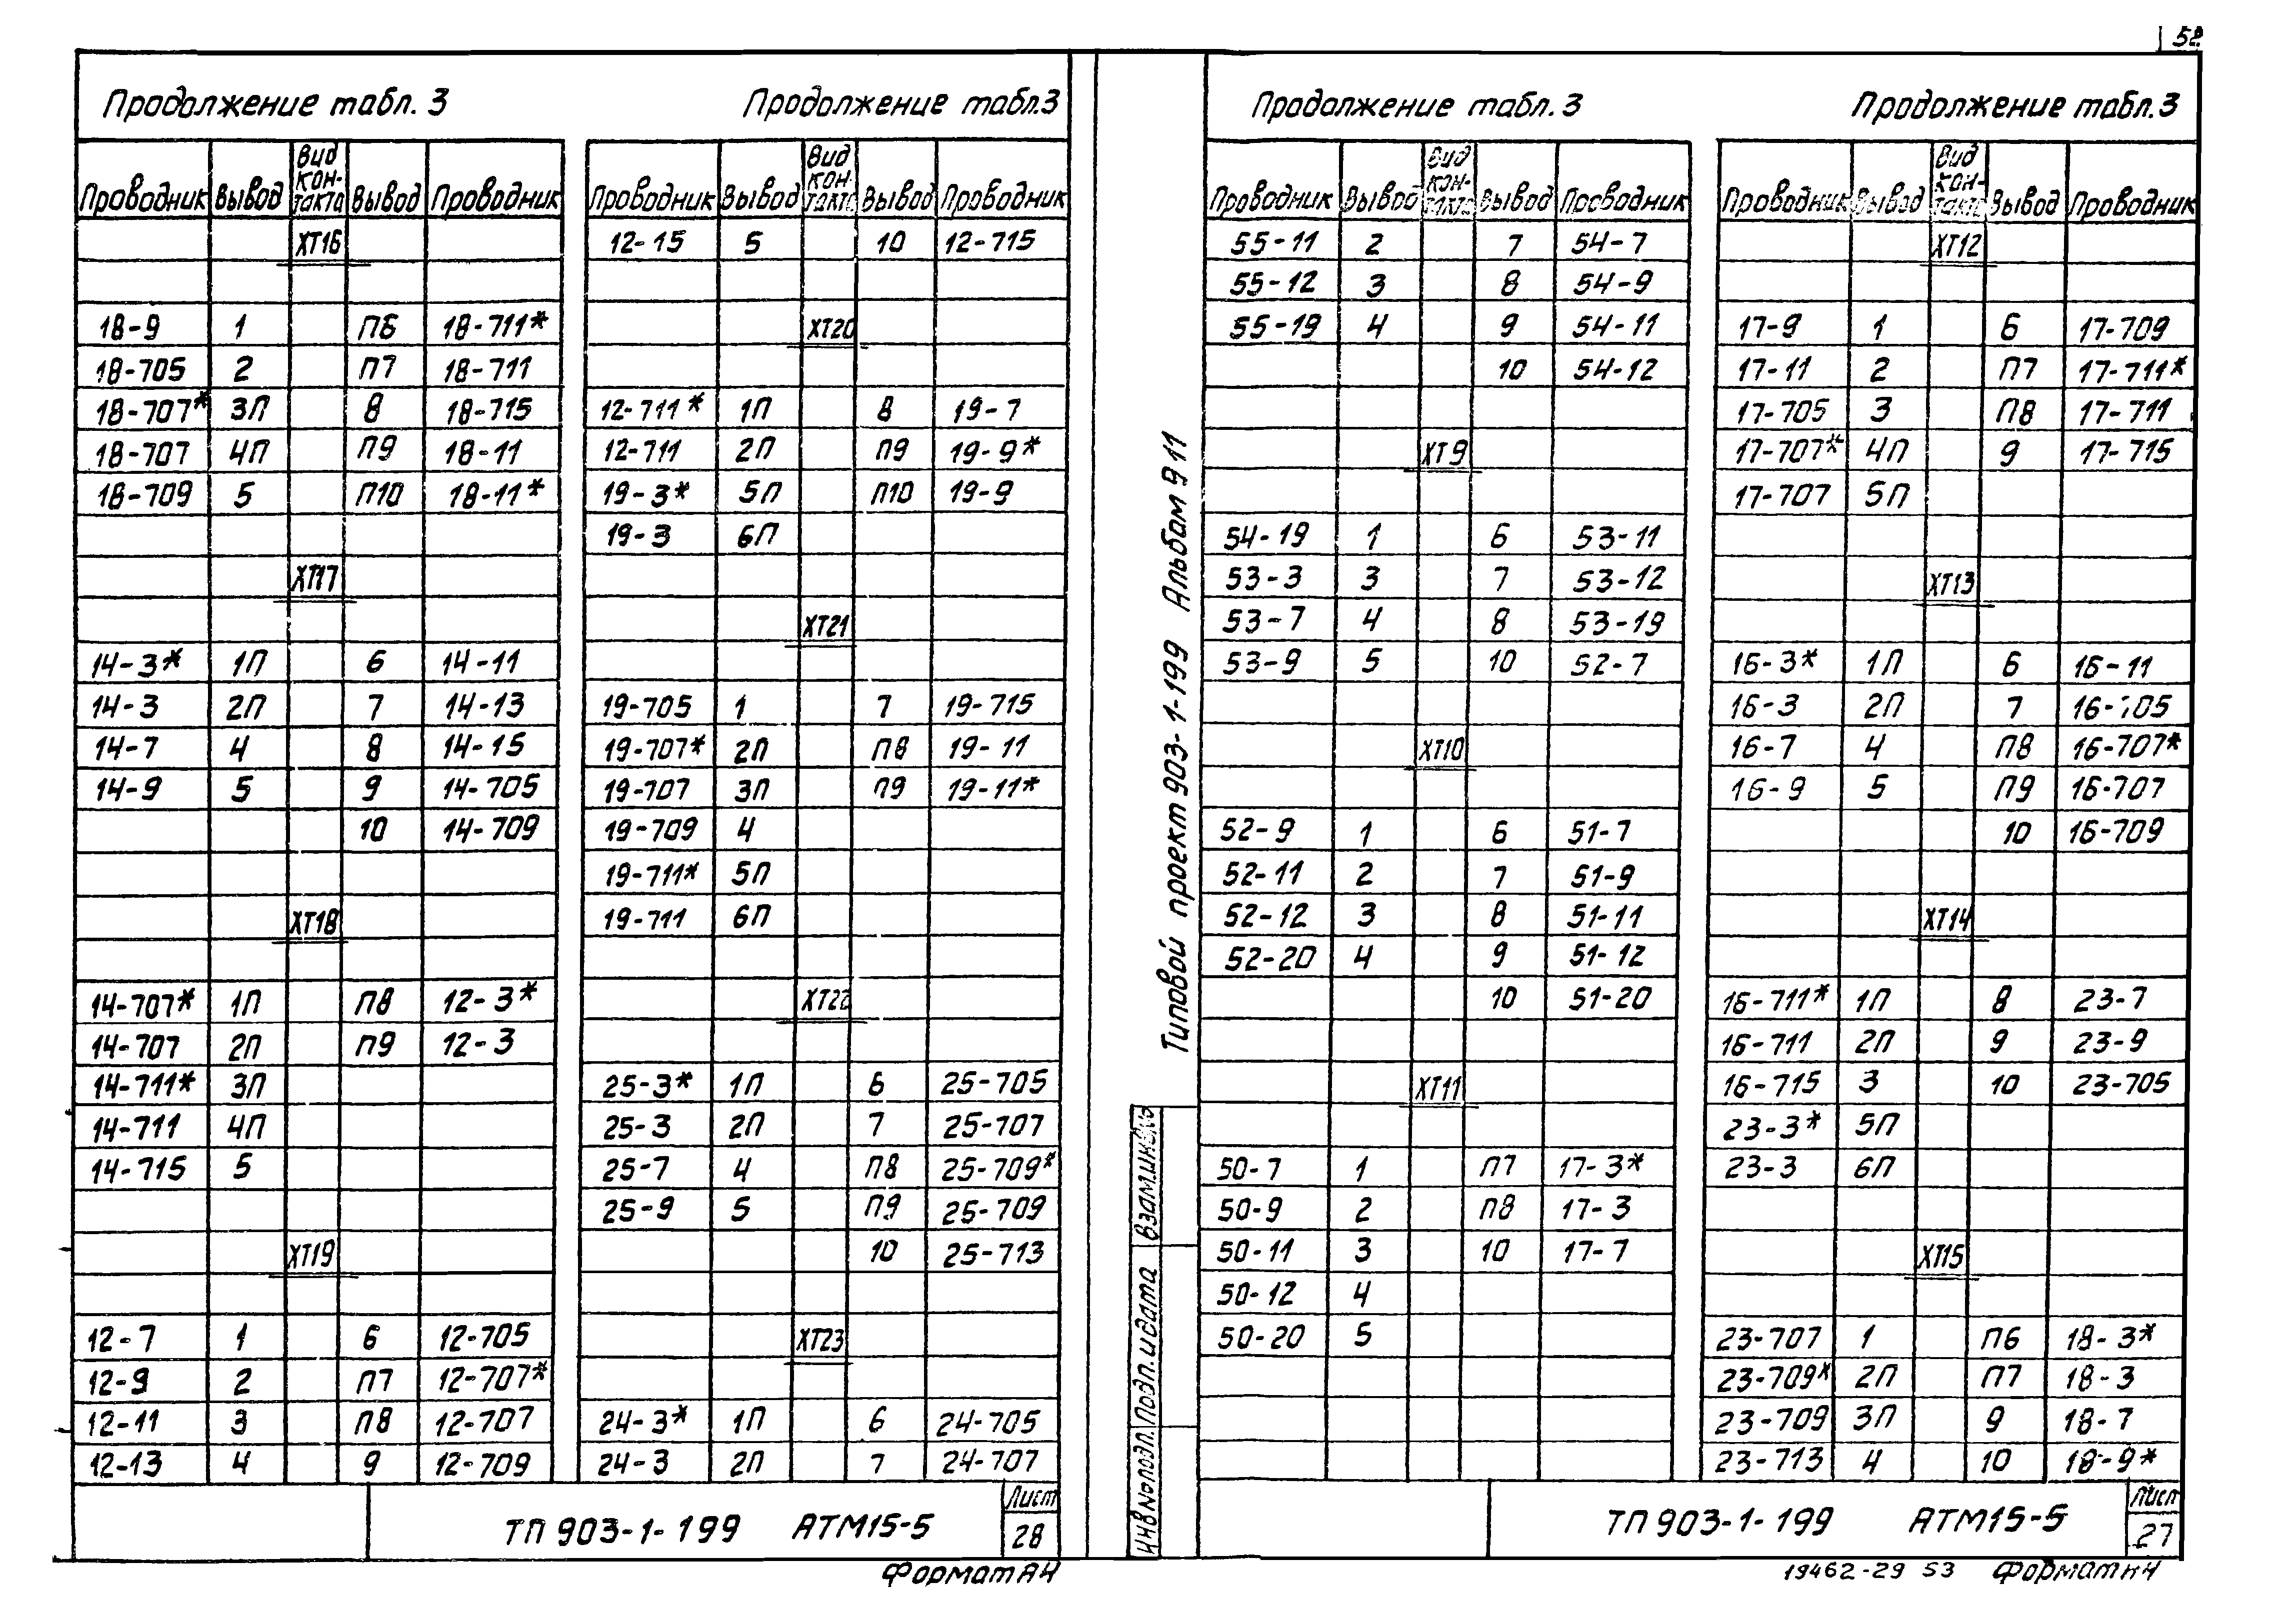 52
Продолжение табл. 3
Проводник Вывод Вид контакта Вывод Проводник
XT16
18-9 1 П6 18-711*
18-705 2 П7 18-711
18-707* 3П 8 18-715
18-707 4П П9 18-11
18-709 5 П10 18-11*
XT17
14-3* 1П 6 14-11
14-3 2П 7 14-13
14-7 4 8 14-15
14-9 5 9 14-705
10 14-709
XT18
14-707* 1П П8 12-3*
14-707 2П П9 12-3
14-711* 3П
14-711 4П
14-715 5
XT19
12-7 1 6 12-705
12-9 2 П7 12-707*
12-11 3 П8 12-707
12-13 4 9 12-709
Продолжение табл.3
Проводник Вывод Вид контакта Вывод Проводник
12-15 5 10 12-715
XT20
12-711* 1П 8 19-7
12-711 2П П9 19-9*
19-3* 5П П10 19-9
19-3 6П
XT21
19-705 1 7 19-715
19-707* 2П П8 19-11
19-707 3П П9 19-11*
19-709 4
19-711* 5П
19-711 6П
XT22
25-3* 1П 6 25-705
25-3 2П 7 25-707
25-7 4 П8 25-709*
25-9 5 П9 25-709
10 25-713
XT23
24-3* 1П 6 24-705
24-3 2П 7 24-707
ТП 903-1-199 АТМ15-5
Лист
28
Формат А4
Типовой проект 903-1-199 Альбом 9 11
Взам.инв.№
Подп. и дата
Инв № подл.
Продолжение табл. 3
Проводник Вывод Вид контакта Вывод Проводник
55-11 2 7 54-7
55-12 3 8 54-9
55-19 4 9 54-11
10 54-12
XT9
54-19 1 6 53-11
53-3 3 7 53-12
53-7 4 8 53-19
53-9 5 10 52-7
XT10
52-9 1 6 51-7
52-11 2 7 51-9
52-12 3 8 51-11
52-20 4 9 51-12
10 51-20
XT11
50-7 1 П7 17-3*
50-9 2 П8 17-3
50-11 3 10 17-7
50-12 4
50-20 5
Продолжение табл.3
Проводник Вывод Вид контакта Вывод Проводник
XT12
17-9 1 6 17-709
17-11 2 П7 17-711*
17-705 3 П8 17-711
17-707* 4П 9 17-715
17-707 5П
XT13
16-3* 1П 6 16-11
16-3 2П 7 16-705
16-7 4 П8 16-707*
16-9 5 П9 16-707
10 16-709
XT14
16-711* 1П 8 23-7
16-711 2П 9 23-9
16-715 3 10 23-705
23-3* 5П
23-3 6П
XT15
23-707 1 П6 18-3*
23-709* 2П П7 18-3
23-709 3П 9 18-7
23-713 4 10 18-9*
ТП 903-1-199 АТМ15-5
Лист
27
19462-29 53 Формат А4